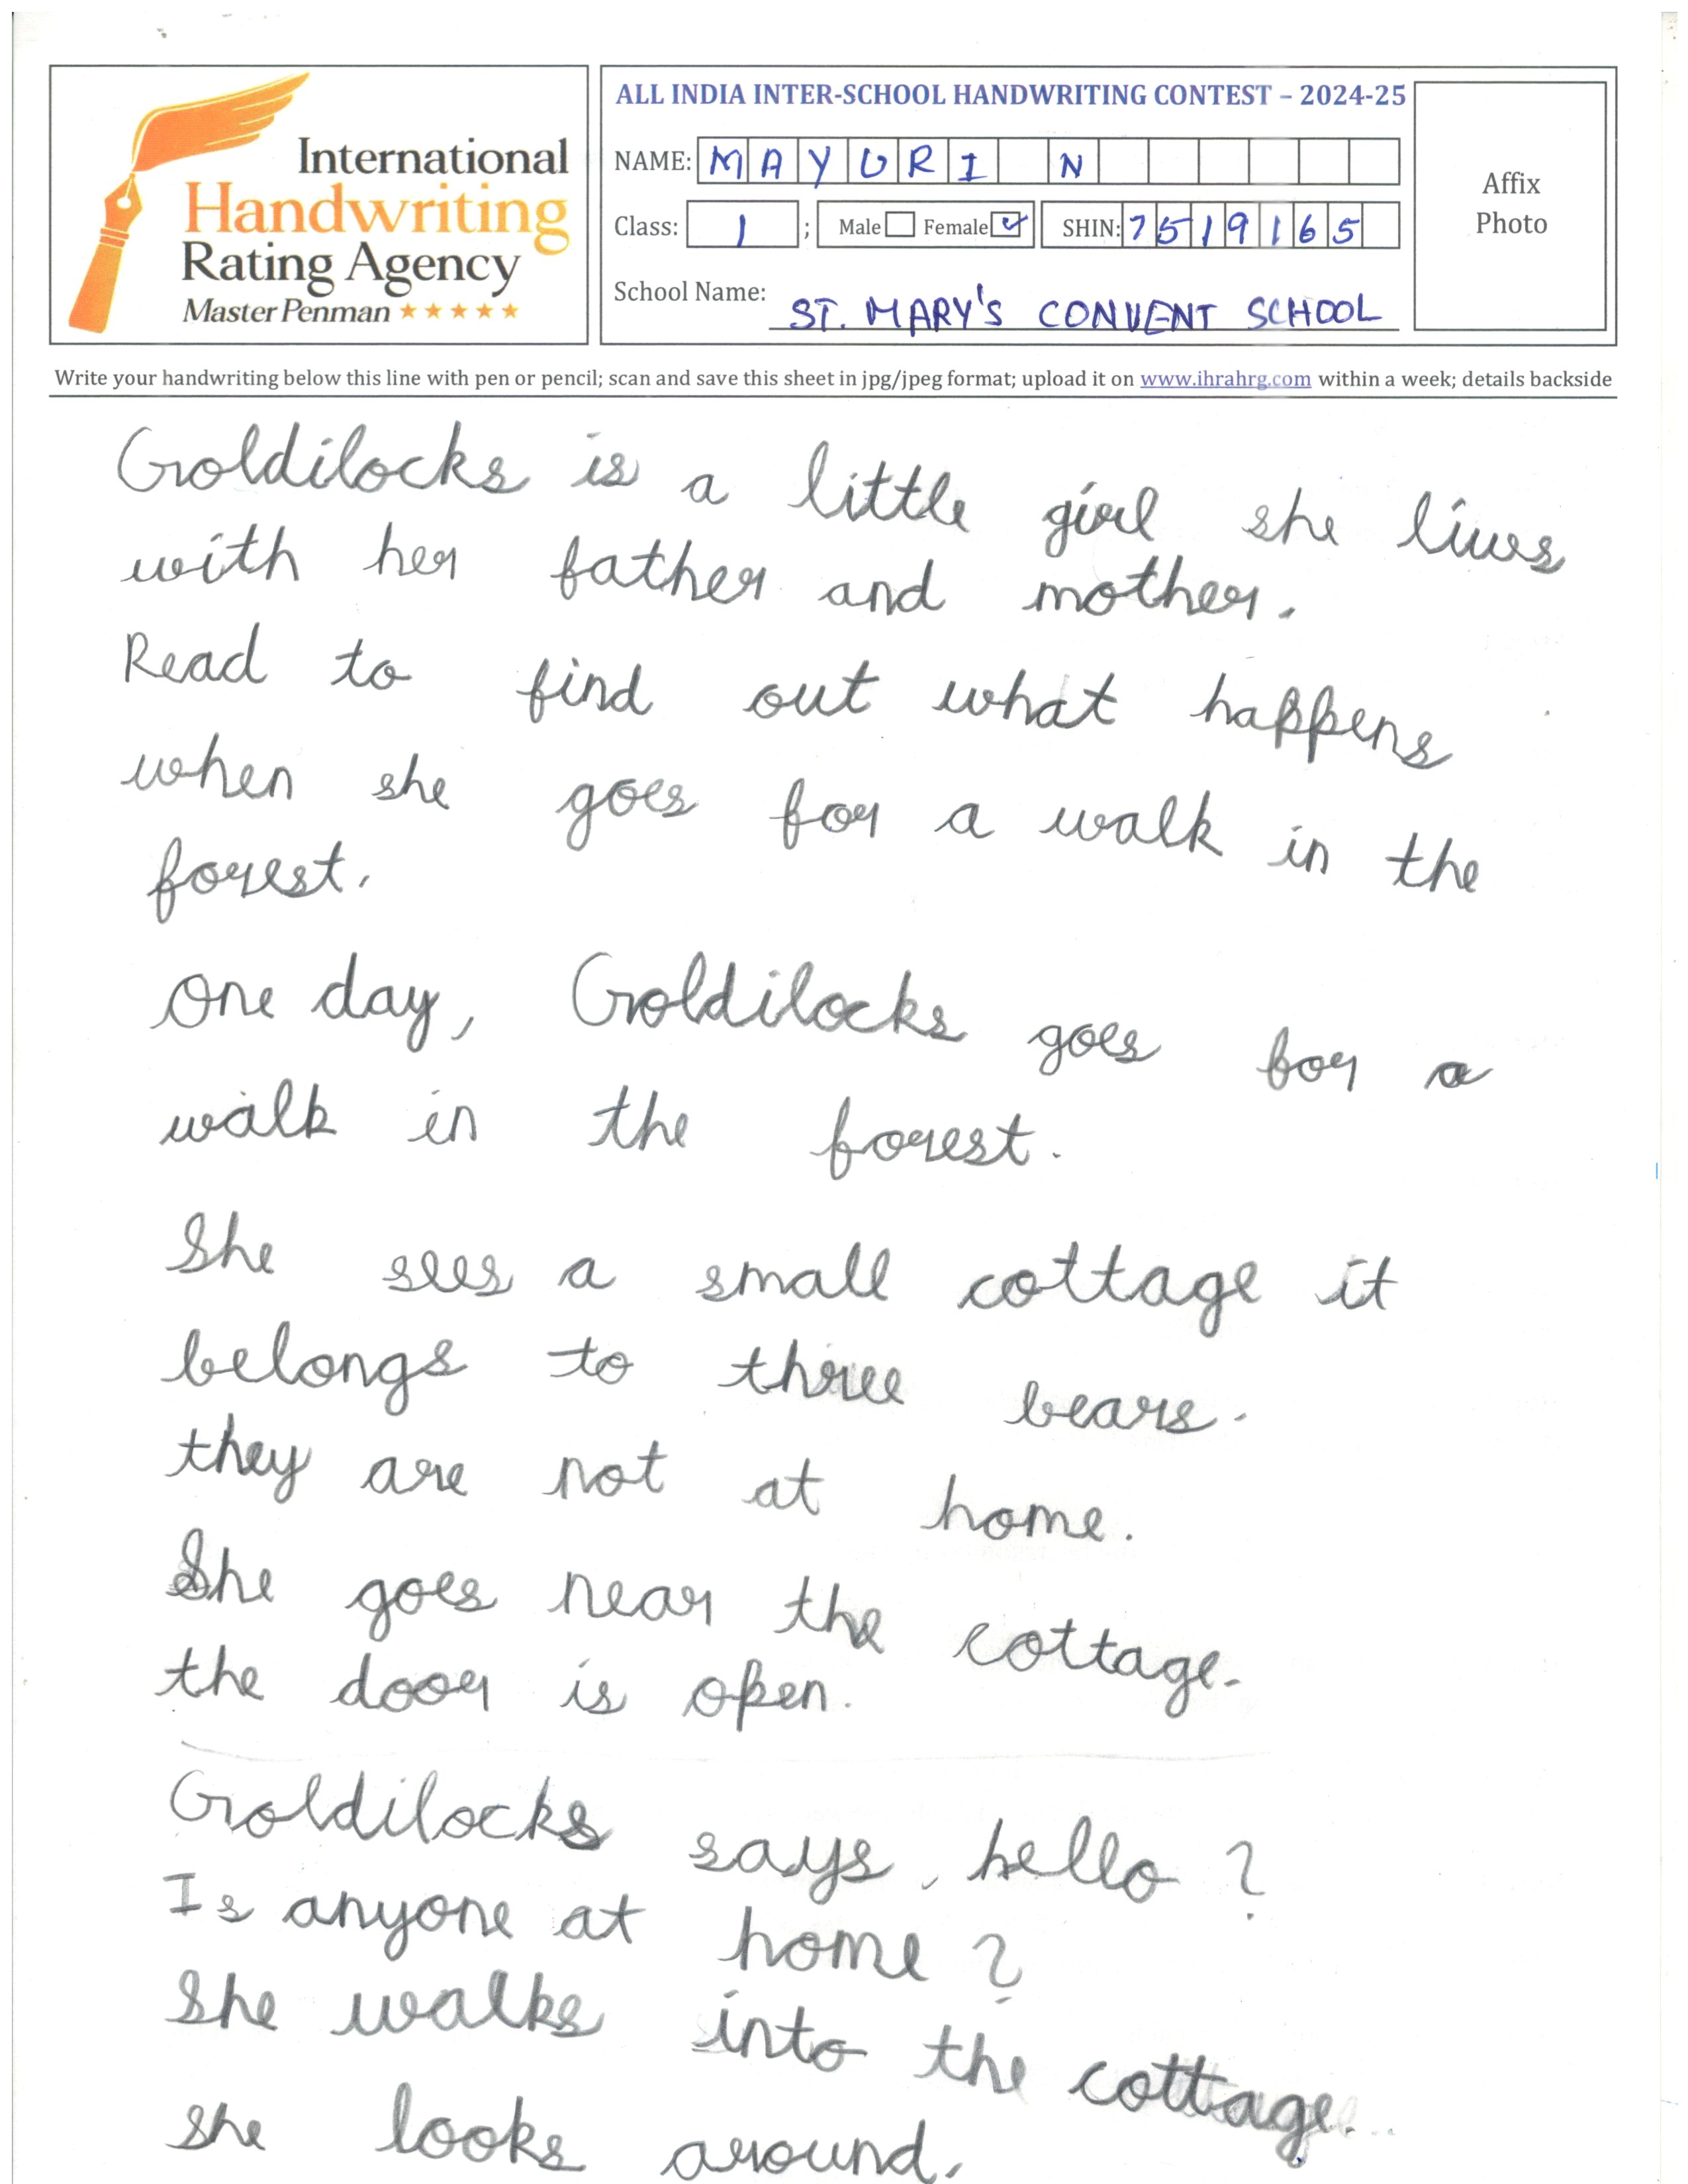 International
Handwriting
Rating Agency
Master Penman
ALL INDIA INTER-SCHOOL HANDWRITING CONTEST – 2024-25
NAME: MAYURI N
Class: 1 ; Male Female SHIN: 7519165
School Name: ST. MARY'S CONVENT SCHOOL
Affix
Photo
Write your handwriting below this line with pen or pencil; scan and save this sheet in jpg/jpeg format; upload it on www.ihrahrg.com within a week; details backside
Goldilocks is a little girl she lives
with her father and mother.
Read to find out what happens
when she goes for a walk in the
forest.
One day, Goldilocks goes for a
walk in the forest.
She sees a small cottage it
belongs to three bears.
they are not at home.
She goes near the cottage.
the door is open.
Goldilocks says, hello ?
Is anyone at home ?
She walks into the cottage.
she looks around.